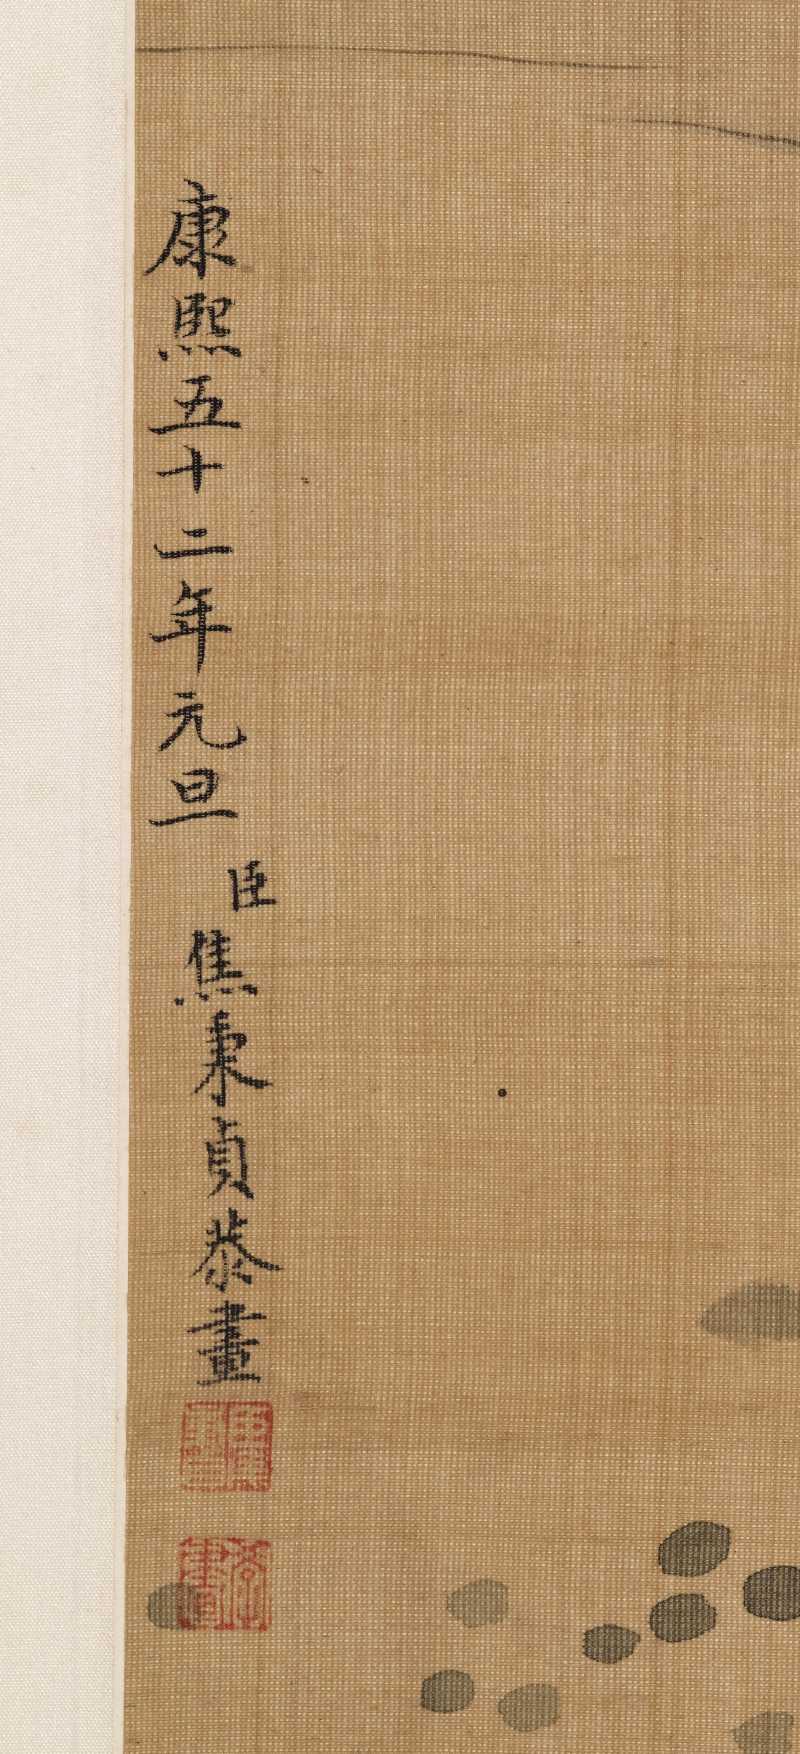 康熙五十二年元旦臣焦秉貞恭畫